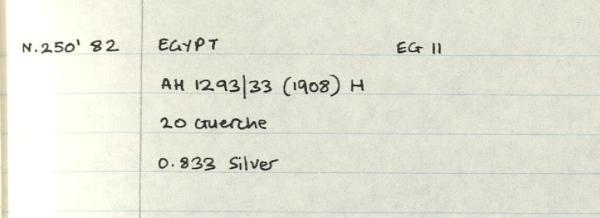 N.250' 82 EGYPT EG 11
AH 1293/33 (1908) H
20 Guerche
0.833 Silver